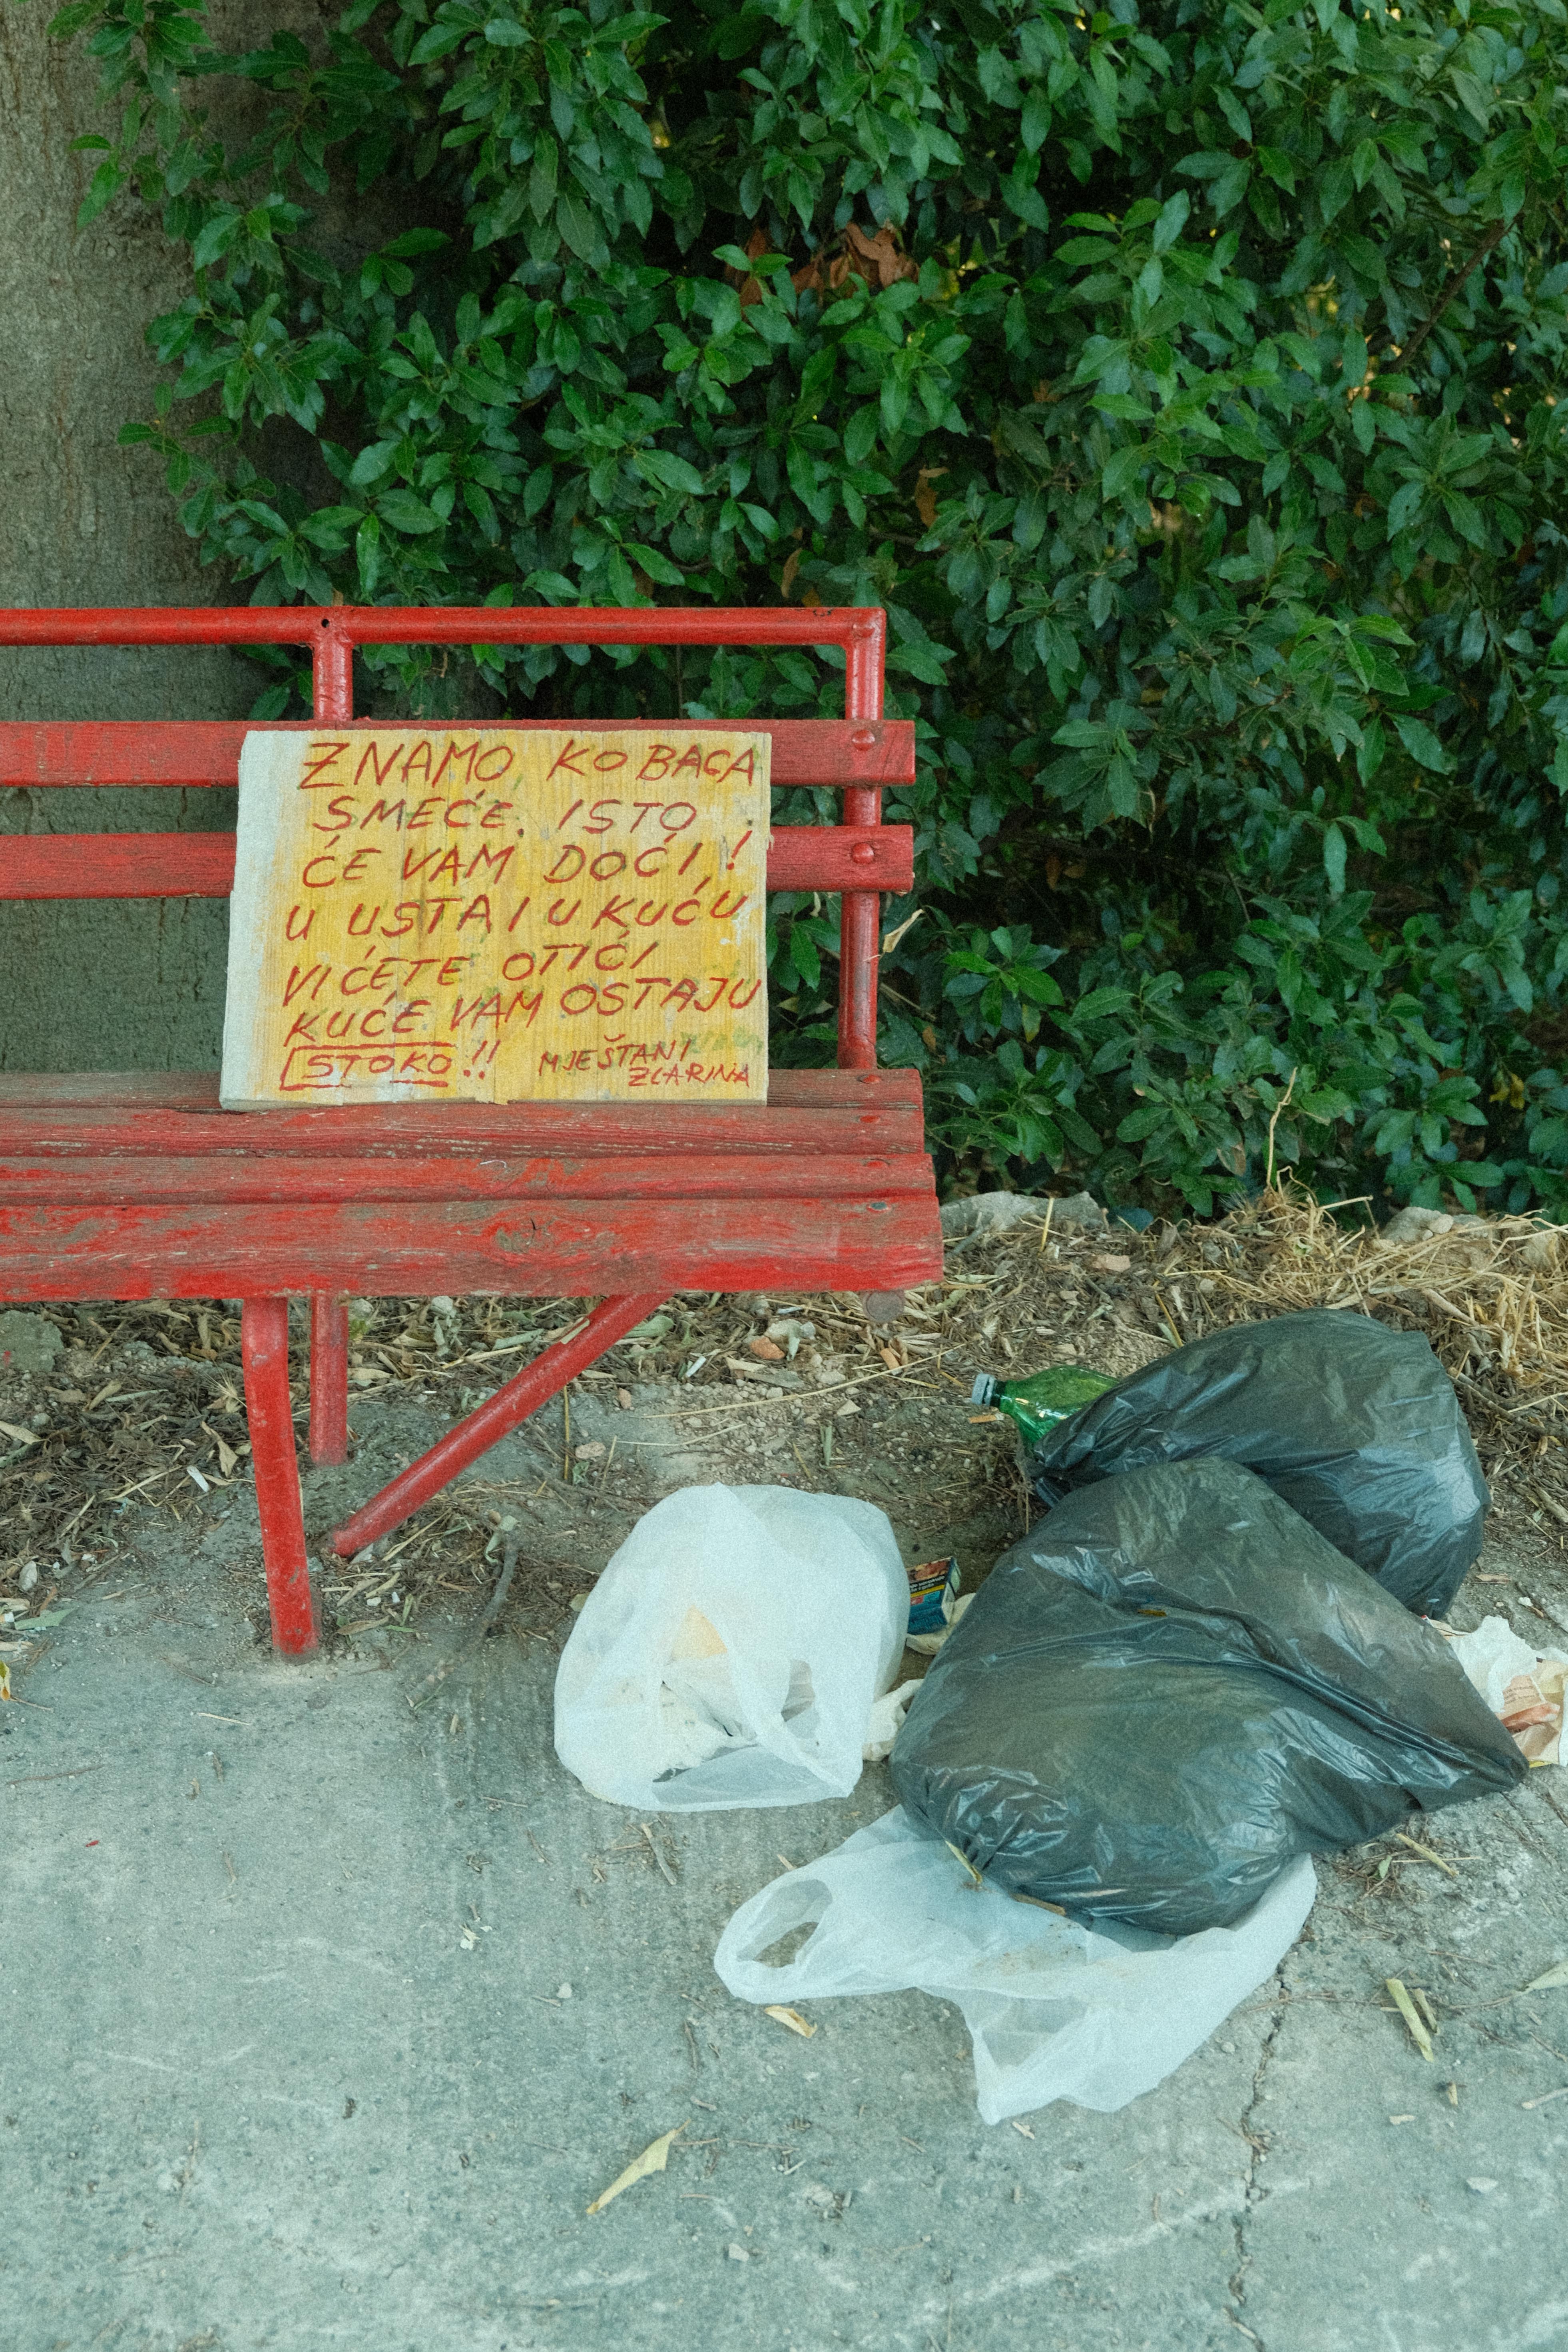 ZNAMO KO BACA
SMEĆE. ISTO
ĆE VAM DOĆI!
U USTA I U KUĆU
VI ĆETE OTIĆI
KUĆE VAM OSTAJU
STOKO!! MJEŠTANI
ZLARINA